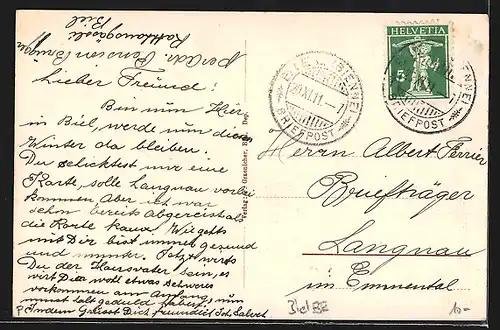 per Adr. Pension
Rathhausgässli
Biel
Lieber Freund!
Bin nun Hier
in Biel, werde nun diesen
Winter da bleiben.
Du schicktest mir eine
Karte, solle Langnau vorbei
kommen Aber ich war
schon bereits abgereist als
die Karte kam. Wie gehts
mit Dir bist immer gesund
und munter. Jetzt wirst
Du der Hausvater sein, es
wirt Dir wohl etwas schweres
vorkommen am Anfang, nun
must halt geduld haben.
Indem Grüsst Dich freundlich Joh.
HELVETIA
5
BIEL (BIENNE)
XI.11.-7
BRIEFPOST
(BIENNE)
BRIEFPOST
Herrn Albert Ferrier
Briefträger
Langnau
im Emmental
Biel BE
10.-